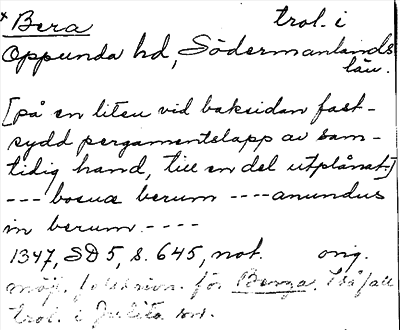 * Bera trol. i
Oppunda hd, Södermanlands
län.
[på en liten vid baksidan fast-
sydd pergamentslapp av sam-
tidig hand, till en del utplånat:]
--- bosua berum ---- anundus
in berum. ----
1347, SD 5, s. 645, not. orig.
möjl. felskrivn. för Benga. I så fall
trol. i Julita sn.